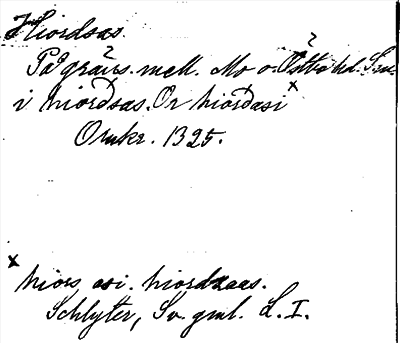 Hiordsas.
På gräns. mell. Mo o. Östbo hd. Sm.
i hiordsas. Or hiordasi x
Omkr. 1325.
x hiors asi. hiordzaas.
Schlyter, Sv. gml. L. I.